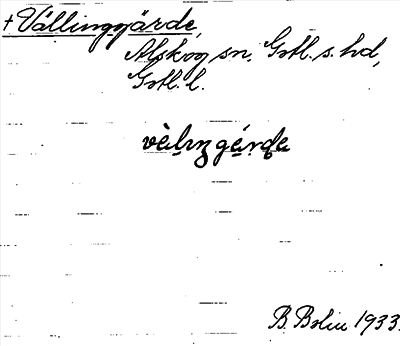 + Vällinggärde,
Alskog sn. Gotl. s. hd,
Gotl. l.
vè̀lıŋgǽrdə
B. Bolin 1933.